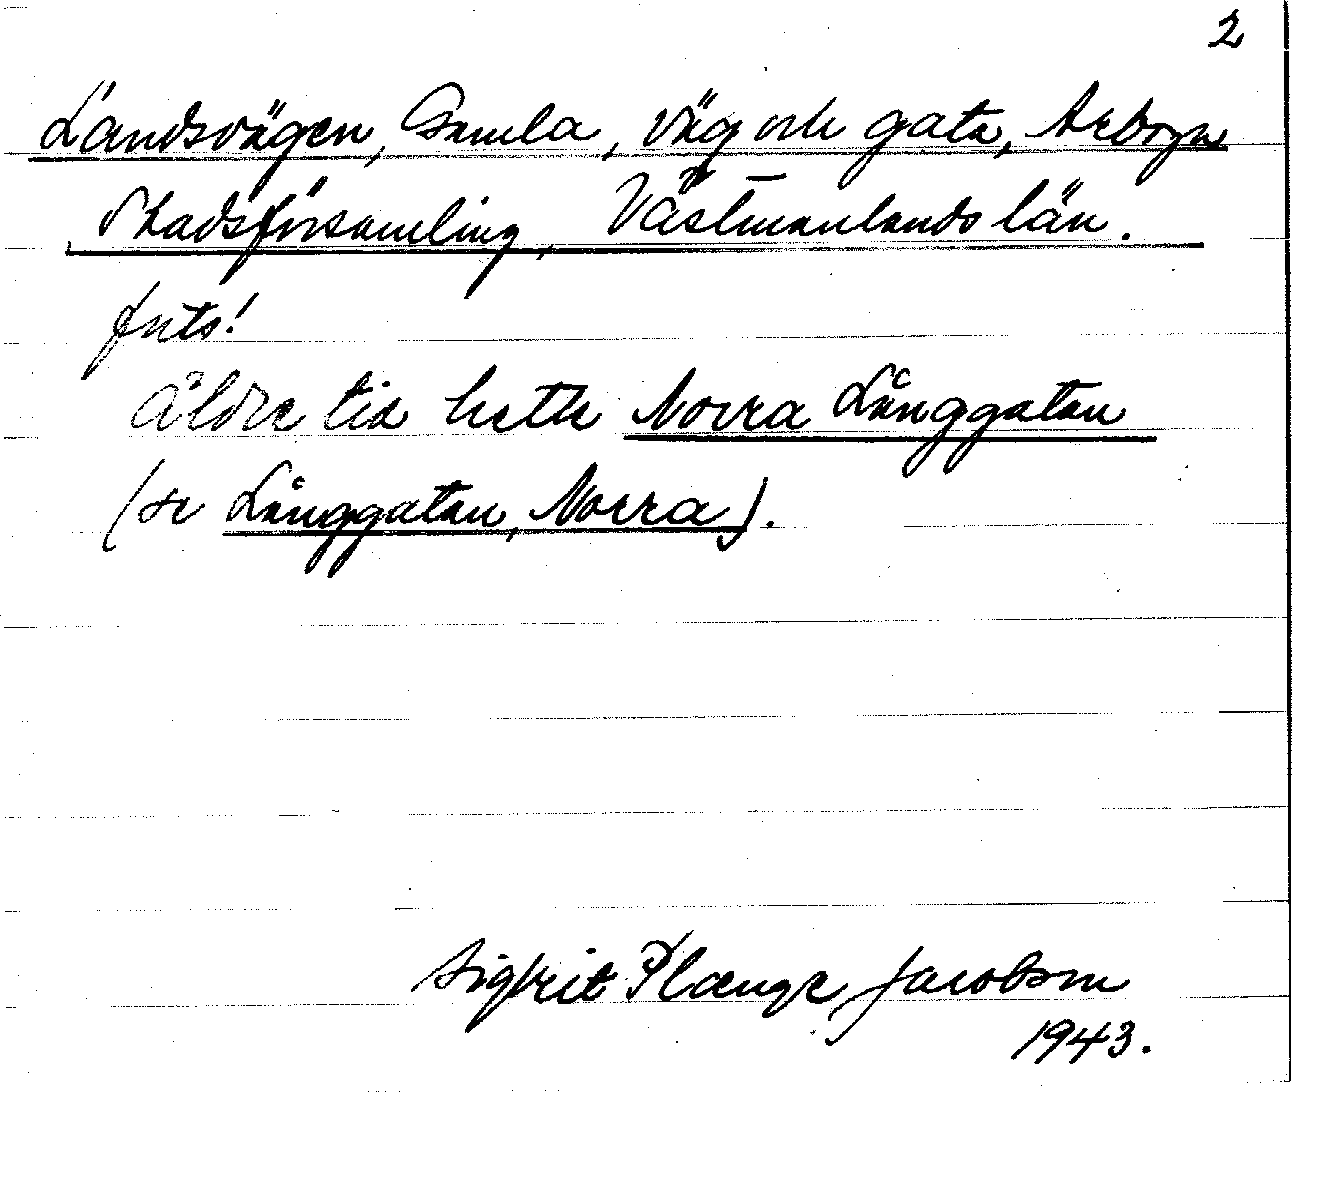 2
Landsvägen, Gamla, väg och gata, Arboga
stadsförsamling, Västmanlands län.
forts!
äldre tid hette Norra Långgatan
(se Långgatan, Norra).
Sigfrit Plænge Jacobson
1943.